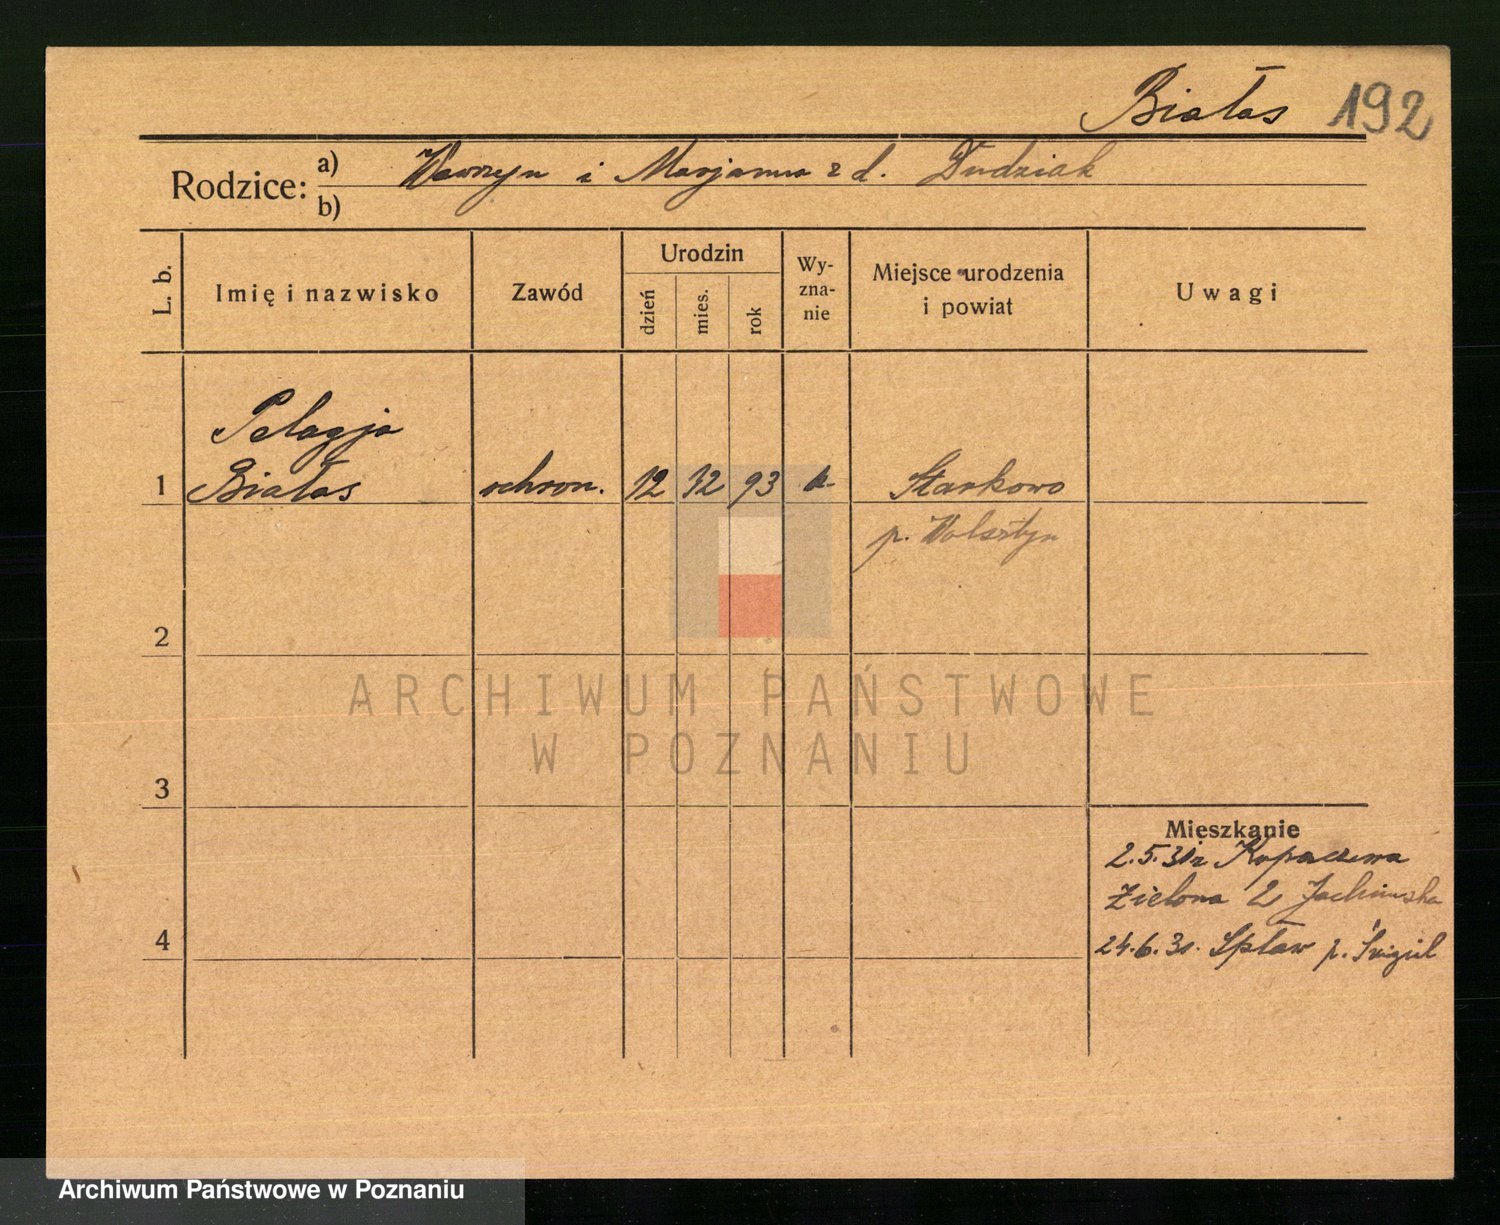 Białas 192
Rodzice: a) Wawrzyn i Marjanna z d. Dudziak
b)
L. b.
Imię i nazwisko
Zawód
Urodzin
dzień
mies.
rok
Wy-
zna-
nie
Miejsce urodzenia
i powiat
Uwagi
Pelagja
1 Białas ochron. 12 12 93 k. Starkowo
p. Wolsztyn
2
ARCHIWUM PAŃSTWOWE
W POZNANIU
3
Mieszkanie
2.5.31
Zielona 2 Jachimska
4
24.6.31. Spław p. Śmigiel
Archiwum Państwowe w Poznaniu